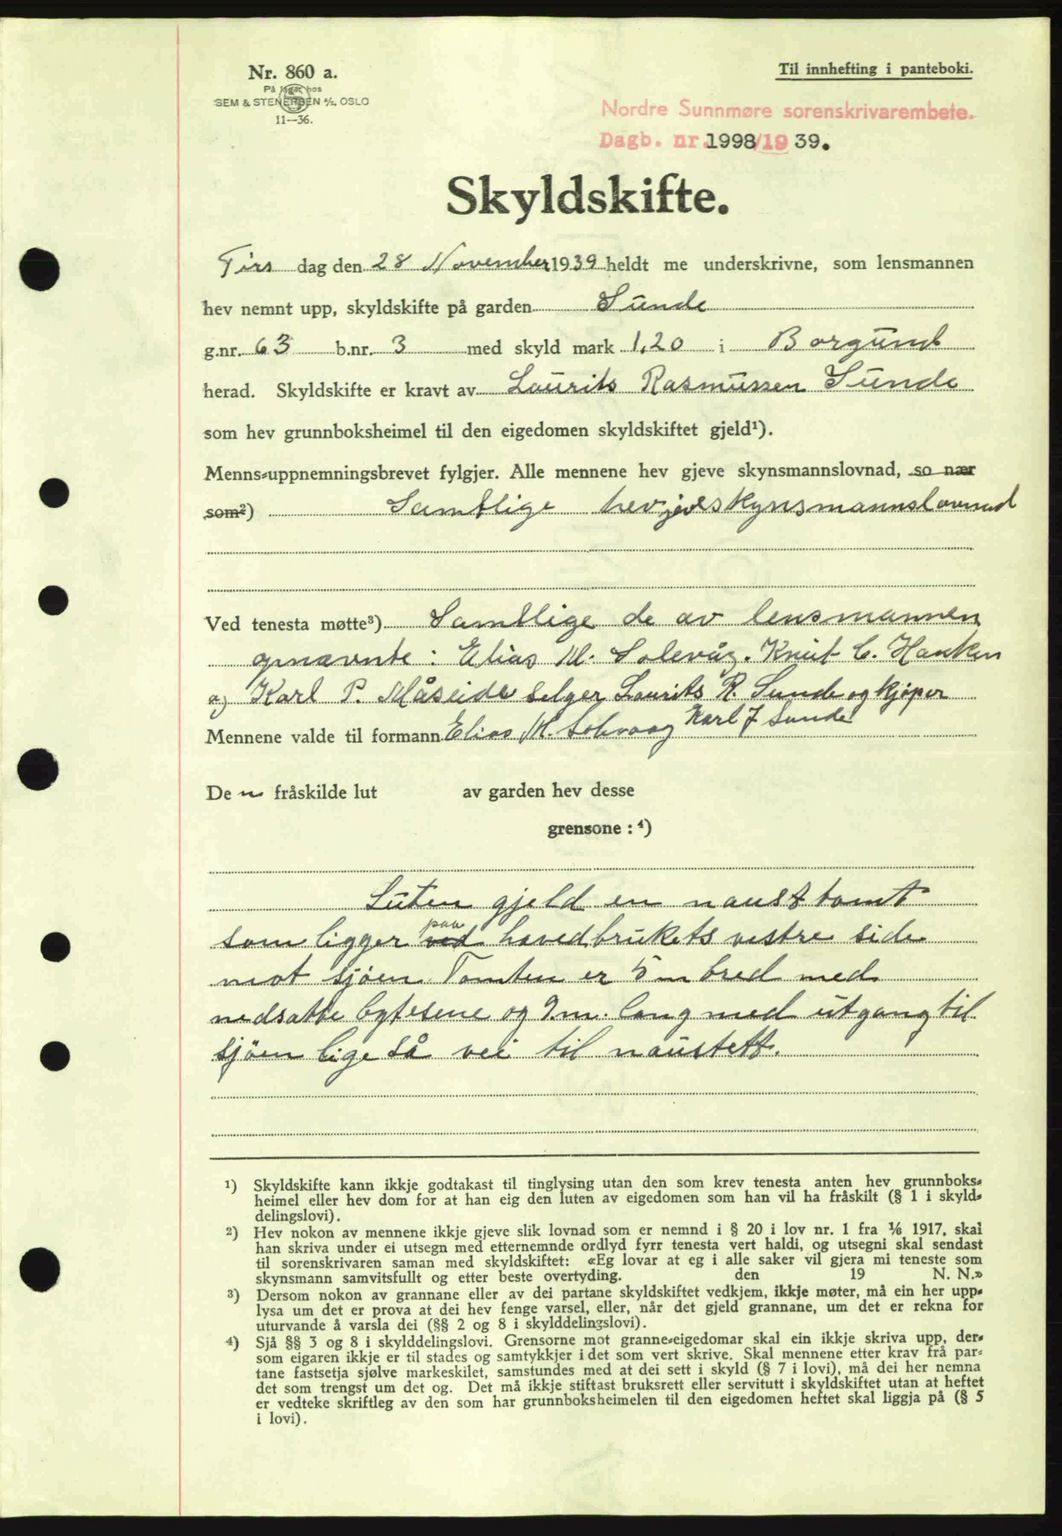 Nr. 860 a.
På lager hos
SEM & STENERSEN A/S, OSLO
11—36.
Til innhefting i panteboki.
Nordre Sunnmøre sorenskrivarembete.
Dagb. nr. 1998/19 39.
Skyldskifte.
Tirs dag den 28 November 1939 heldt me underskrivne, som lensmannen
hev nemnt upp, skyldskifte på garden Sunde
g.nr. 63 b.nr. 3 med skyld mark 1,20 i Borgund
herad. Skyldskifte er kravt av Laurits Rasmussen Sunde
som hev grunnboksheimel til den eigedomen skyldskiftet gjeld¹).
Menns-uppnemningsbrevet fylgjer. Alle mennene hev gjeve skynsmannslovnad, so nær
som²) Samtlige hev gjeve skynsmannslovnad
Ved tenesta møtte³) Samtlige de av lensmannen
opnævnte: Elias M. Solevåg. Knut C. Hauken
og Karl P. Måseide selger Laurits R. Sunde og kjøper
Karl J Sunde
Mennene valde til formann Elias M. Solevaag
De n fråskilde lut av garden hev desse
grensone: ⁴)
Luten gjeld en nausttomt
som ligger ved paa hovedbrukets vestre side
mot sjøen Tomten er 5 m bred med
nedsatte bytesene og 9 m. lang med utgang til
sjøen lige så vei til naustett.
¹) Skyldskifte kann ikkje godtakast til tinglysing utan den som krev tenesta anten hev grunnboks-
heimel eller hev dom for at han eig den luten av eigedomen som han vil ha fråskilt (§ 1 i skyld-
delingslovi).
²) Hev nokon av mennene ikkje gjeve slik lovnad som er nemnd i § 20 i lov nr. 1 fra 1/6 1917, skal
han skriva under ei utsegn med etternemnde ordlyd fyrr tenesta vert haldi, og utsegni skal sendast
til sorenskrivaren saman med skyldskiftet: «Eg lovar at eg i alle saker vil gjera mi teneste som
skynsmann samvitsfullt og etter beste overtyding. den 19 N. N.»
³) Dersom nokon av grannane eller av dei partane skyldskiftet vedkjem, ikkje møter, må ein her upp-
lysa um det er prova at dei hev fenge varsel, eller, når det gjeld grannane, um det er rekna for
uturvande å varsla dei (§§ 2 og 8 i skylddelingslovi).
⁴) Sjå §§ 3 og 8 i skylddelingslovi. Grensorne mot granne-eigedomar skal ein ikkje skriva upp, der-
som eigaren ikkje er til stades og samtykkjer i det som vert skrive. Skal mennene etter krav frå par-
tane fastsetja sjølve markeskilet, samstundes med at dei sett i skyld (§ 7 i lovi), må dei her nemna
det som trengst um det og. Det må ikkje stiftast bruksrett eller servitutt i skyldskiftet utan at heftet
er vedteke skriftleg av den som har grunnboksheimelen til den eigedomen heftet skal liggja på (§ 5
i lovi).